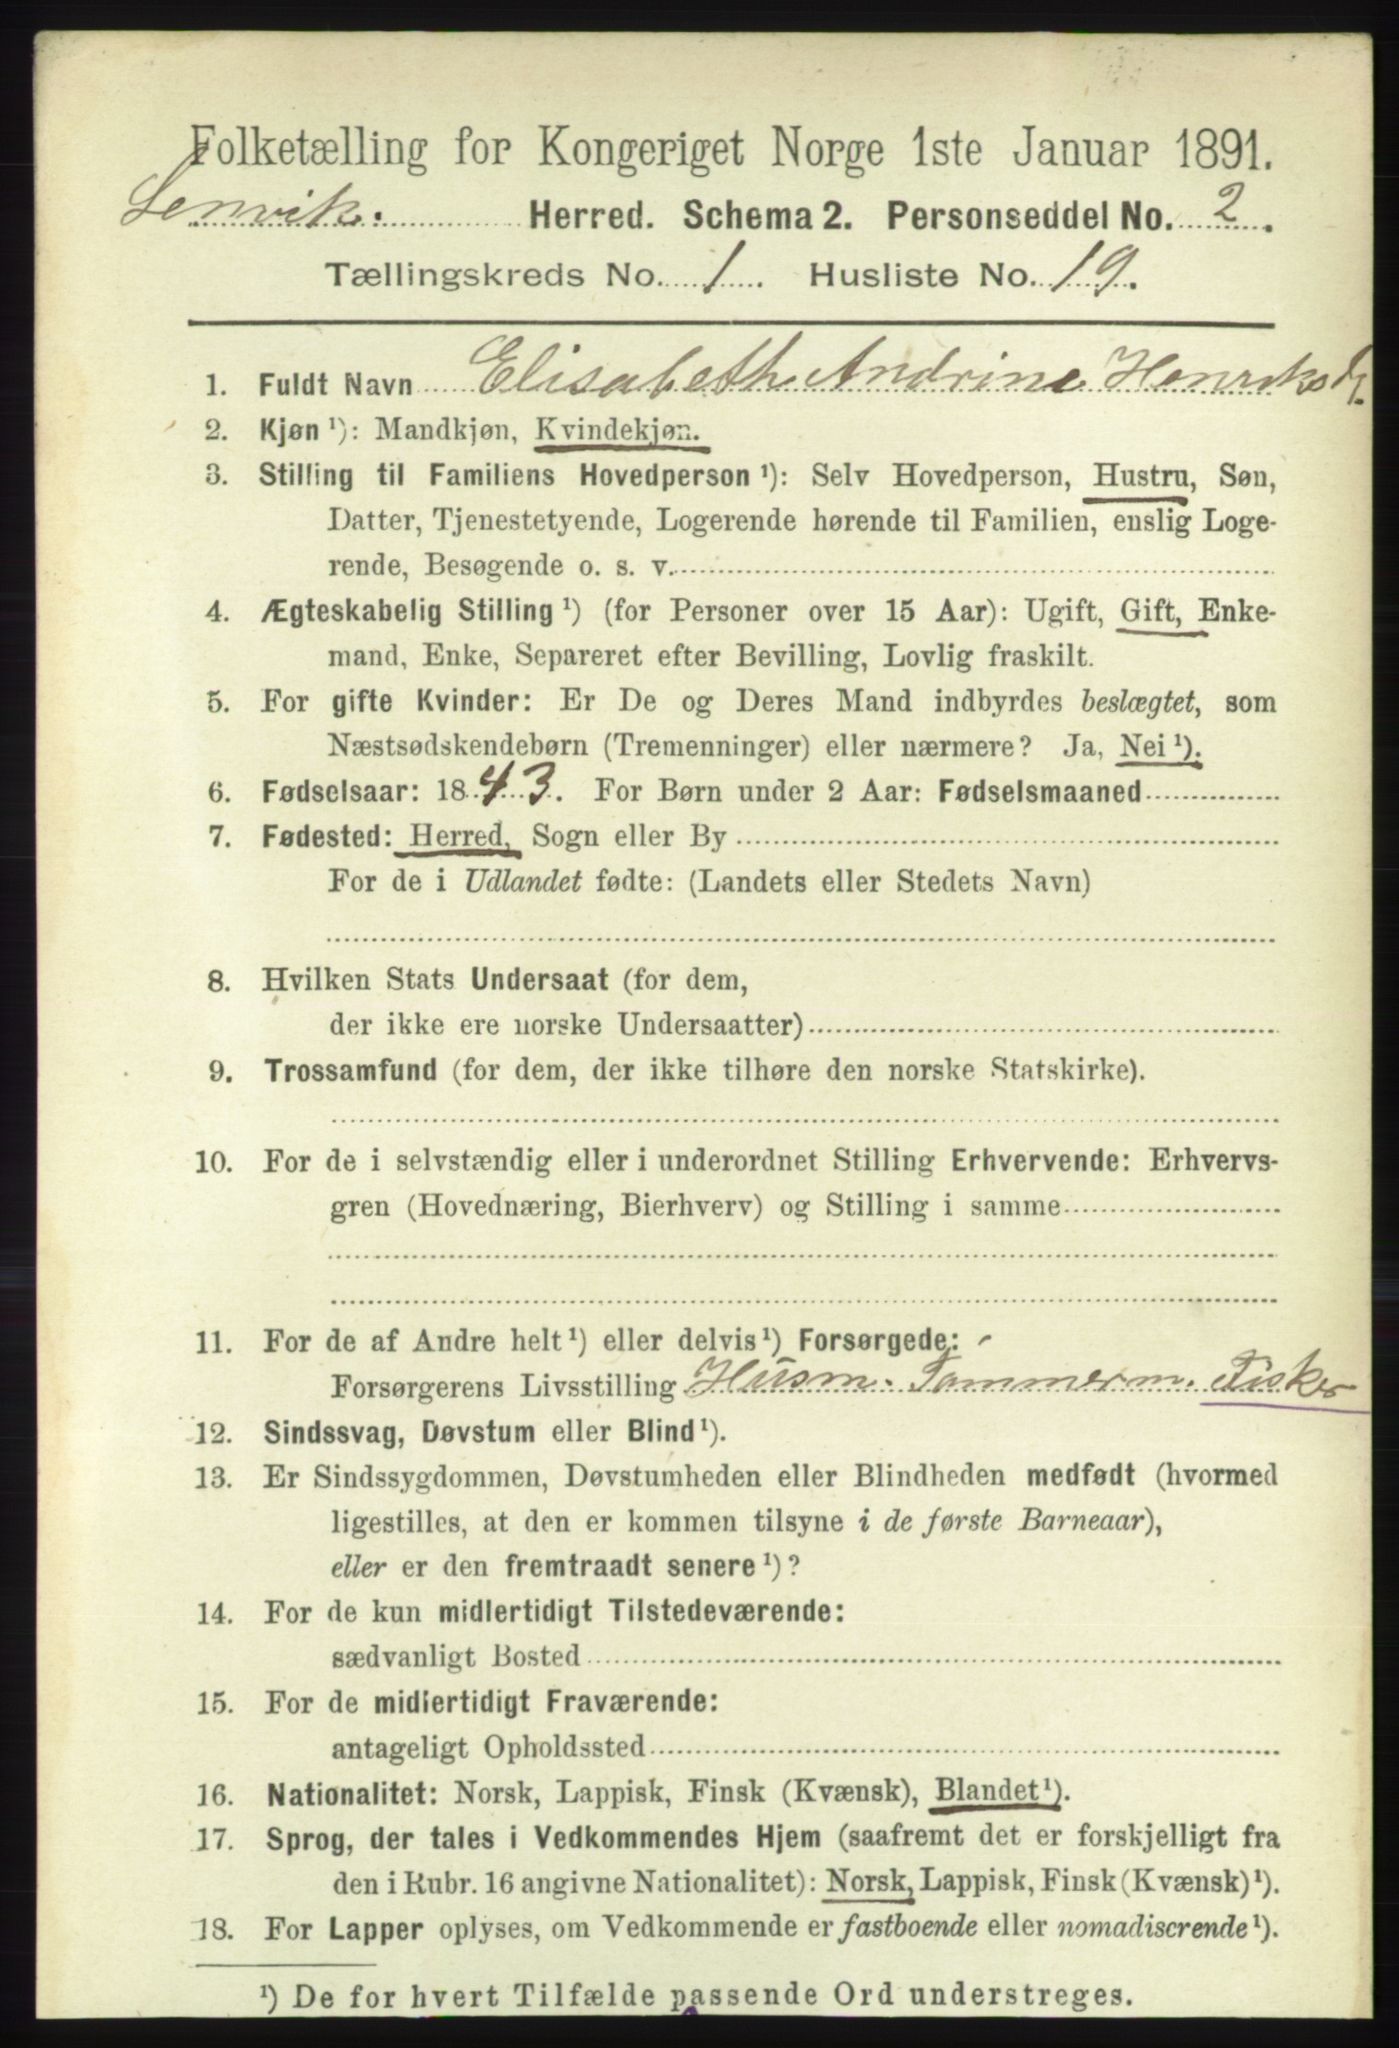 Folketælling for Kongeriget Norge 1ste Januar 1891.
Lenvik. Herred. Schema 2. Personseddel No. 2.
Tællingskreds No. 1. Husliste No. 19.
1. Fuldt Navn Elisabeth Andrine Henriksdr.
2. Kjøn ¹): Mandkjøn, Kvindekjøn.
3. Stilling til Familiens Hovedperson ¹): Selv Hovedperson, Hustru, Søn,
Datter, Tjenestetyende, Logerende hørende til Familien, enslig Loge-
rende, Besøgende o. s. v.
4. Ægteskabelig Stilling ¹) (for Personer over 15 Aar): Ugift, Gift, Enke-
mand, Enke, Separeret efter Bevilling, Lovlig fraskilt.
5. For gifte Kvinder: Er De og Deres Mand indbyrdes beslægtet, som
Næstsødskendebørn (Tremenninger) eller nærmere? Ja, Nei ¹).
6. Fødselsaar: 1843. For Børn under 2 Aar: Fødselsmaaned
7. Fødested: Herred, Sogn eller By
For de i Udlandet fødte: (Landets eller Stedets Navn)
8. Hvilken Stats Undersaat (for dem,
der ikke ere norske Undersaatter)
9. Trossamfund (for dem, der ikke tilhøre den norske Statskirke).
10. For de i selvstændig eller i underordnet Stilling Erhvervende: Erhvervs-
gren (Hovednæring, Bierhverv) og Stilling i samme
11. For de af Andre helt ¹) eller delvis ¹) Forsørgede: -
Forsørgerens Livsstilling Husm. Tømmerm. Fisker
12. Sindssvag, Døvstum eller Blind ¹).
13. Er Sindssygdommen, Døvstumheden eller Blindheden medfødt (hvormed
ligestilles, at den er kommen tilsyne i de første Barneaar),
eller er den fremtraadt senere ¹)?
14. For de kun midlertidigt Tilstedeværende:
sædvanligt Bosted
15. For de midlertidigt Fraværende:
antageligt Opholdssted
16. Nationalitet: Norsk, Lappisk, Finsk (Kvænsk), Blandet ¹).
17. Sprog, der tales i Vedkommendes Hjem (saafremt det er forskjelligt fra
den i Rubr. 16 angivne Nationalitet): Norsk, Lappisk, Finsk (Kvænsk) ¹).
18. For Lapper oplyses, om Vedkommende er fastboende eller nomadiserende ¹).
¹) De for hvert Tilfælde passende Ord understreges.